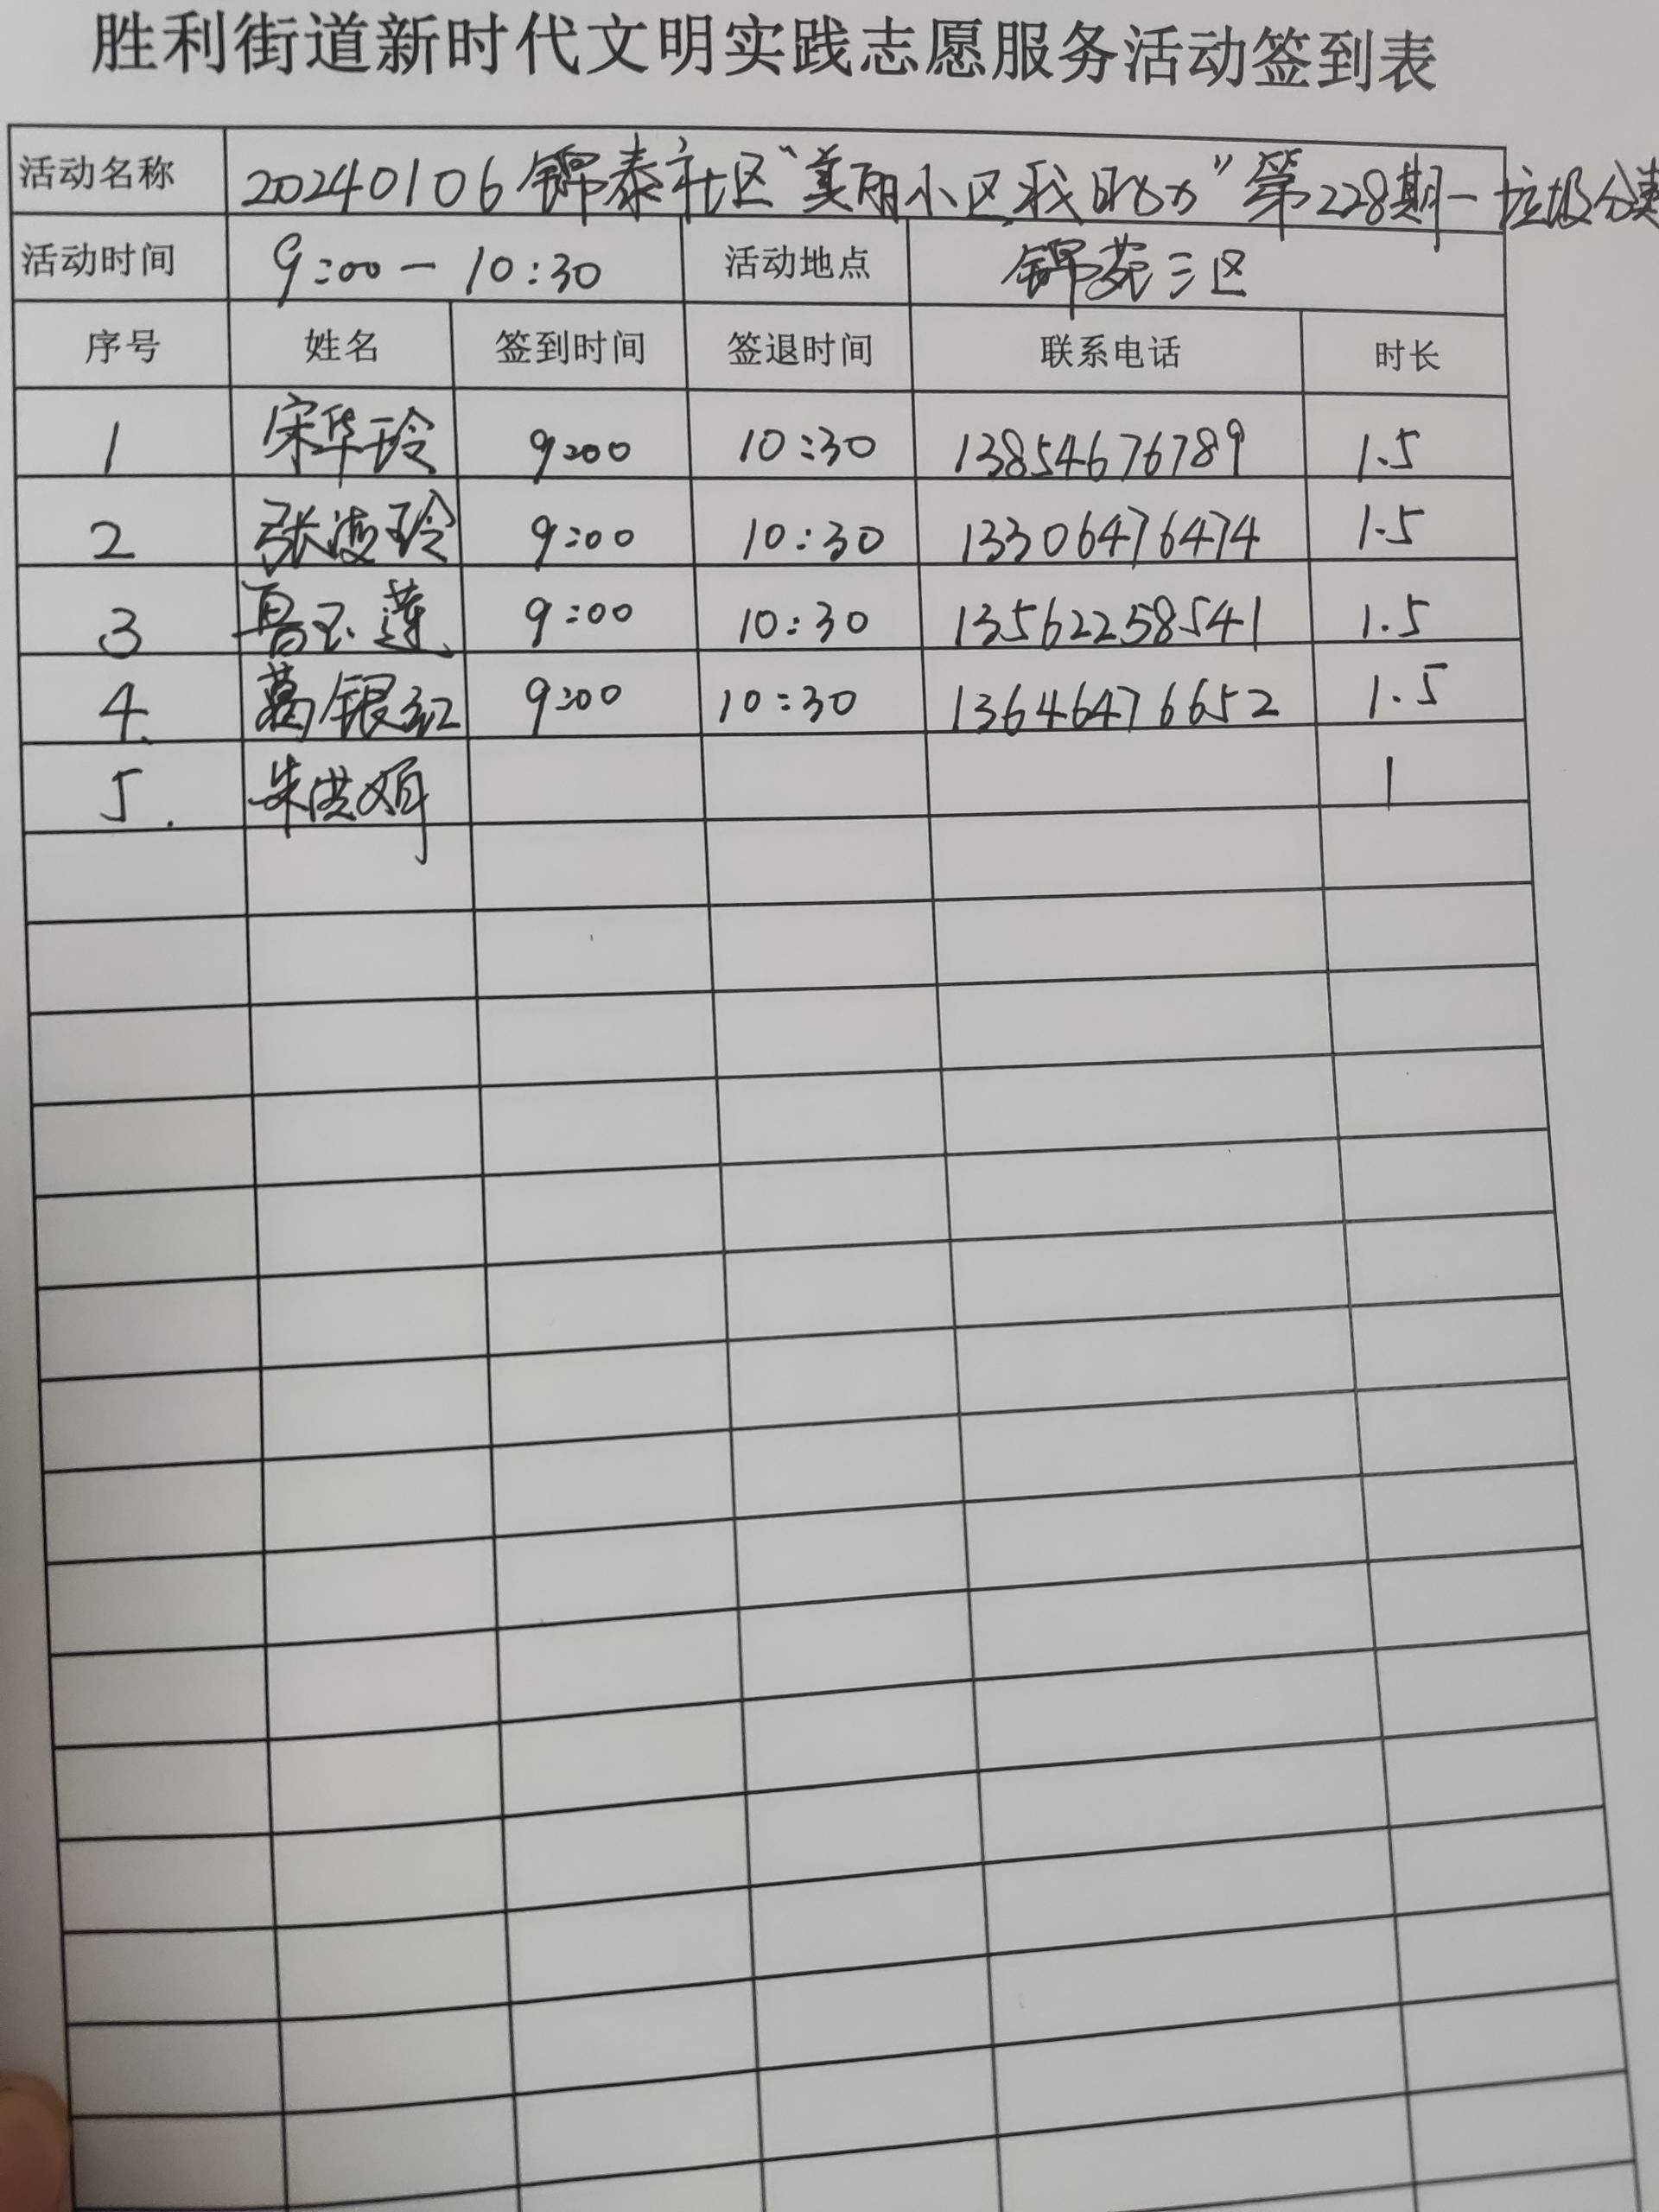 胜利街道新时代文明实践志愿服务活动签到表
活动名称 20240106锦泰社区“美丽小区,我助力”第228期-垃圾分类
活动时间 9:00-10:30 活动地点 锦苑三区
序号 姓名 签到时间 签退时间 联系电话 时长
1 宋华玲 9:00 10:30 13854676789 1.5
2 张海玲 9:00 10:30 13306476474 1.5
3 玉莲 9:00 10:30 13562258541 1.5
4. 葛银红 9:00 10:30 13646476652 1.5
5. 朱洪 1